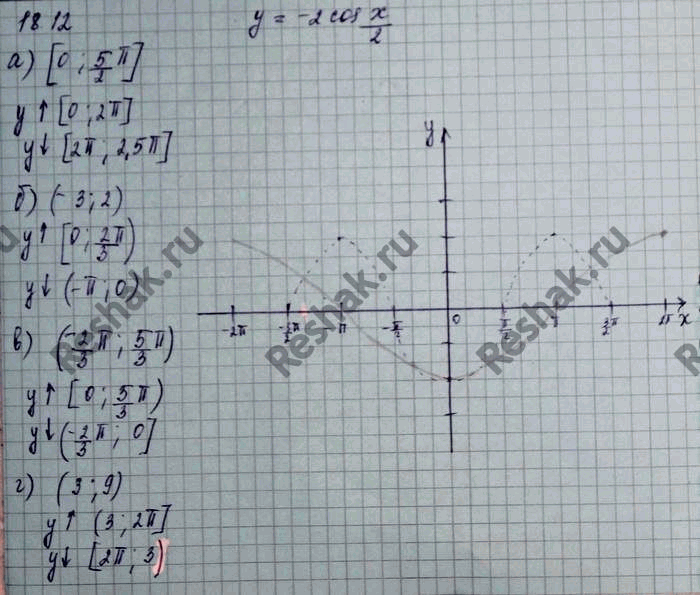 18 12
y = -2 cos x/2
а) [0 ; 5/2 π]
y↑ [0 ; 2π]
y↓ [2π ; 2,5π]
б) (-3 ; 2)
y↑ [0 ; 2π/3)
y↓ (-π ; 0)
в) (-2/3 π ; 5/3 π)
y↑ [0 ; 5/3 π)
y↓ (-2/3 π ; 0]
г) (3 ; 9)
y↑ (3 ; 2π]
y↓ [2π ; 3)
y
-2π
-π
-π/2
0
π/2
3/2 π
2π
x
Reshak.ru
Reshak.ru
Reshak.ru
Reshak.ru